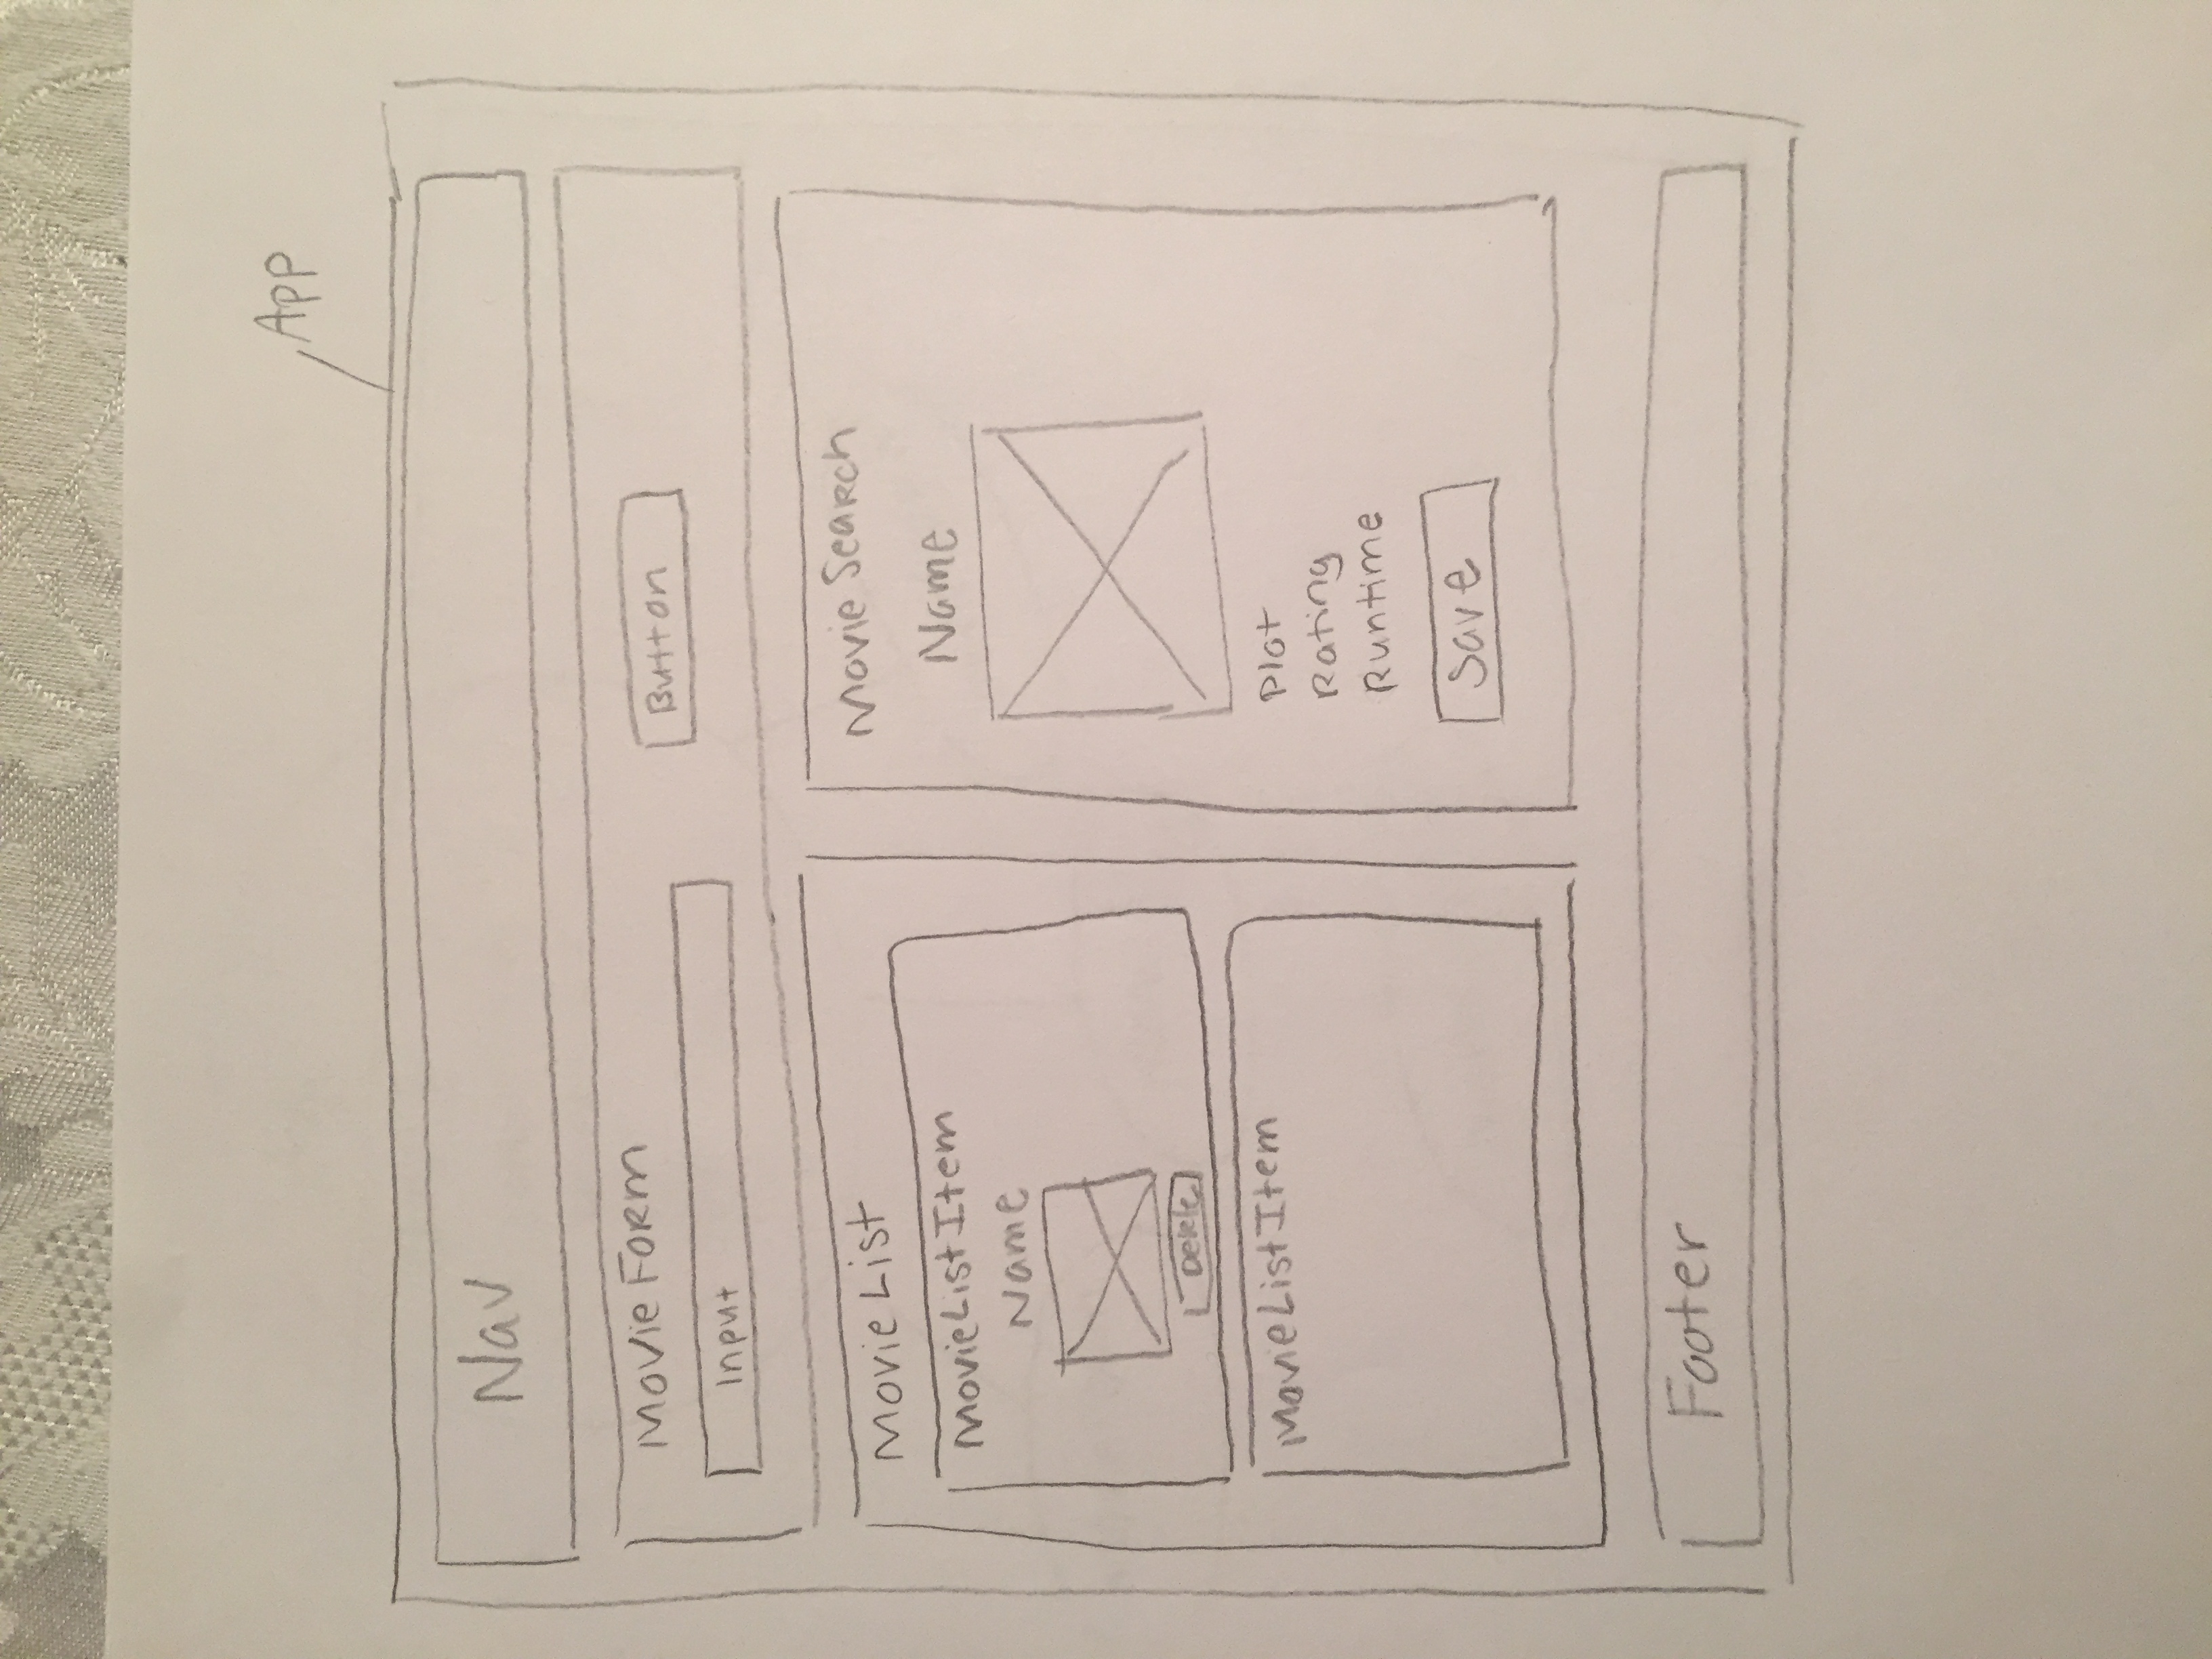 App
Nav
Movie Form
Button
Input
Movie List
MovieListItem
Name
Delete
MovieListItem
Movie Search
Name
Plot
Rating
Runtime
Save
Footer